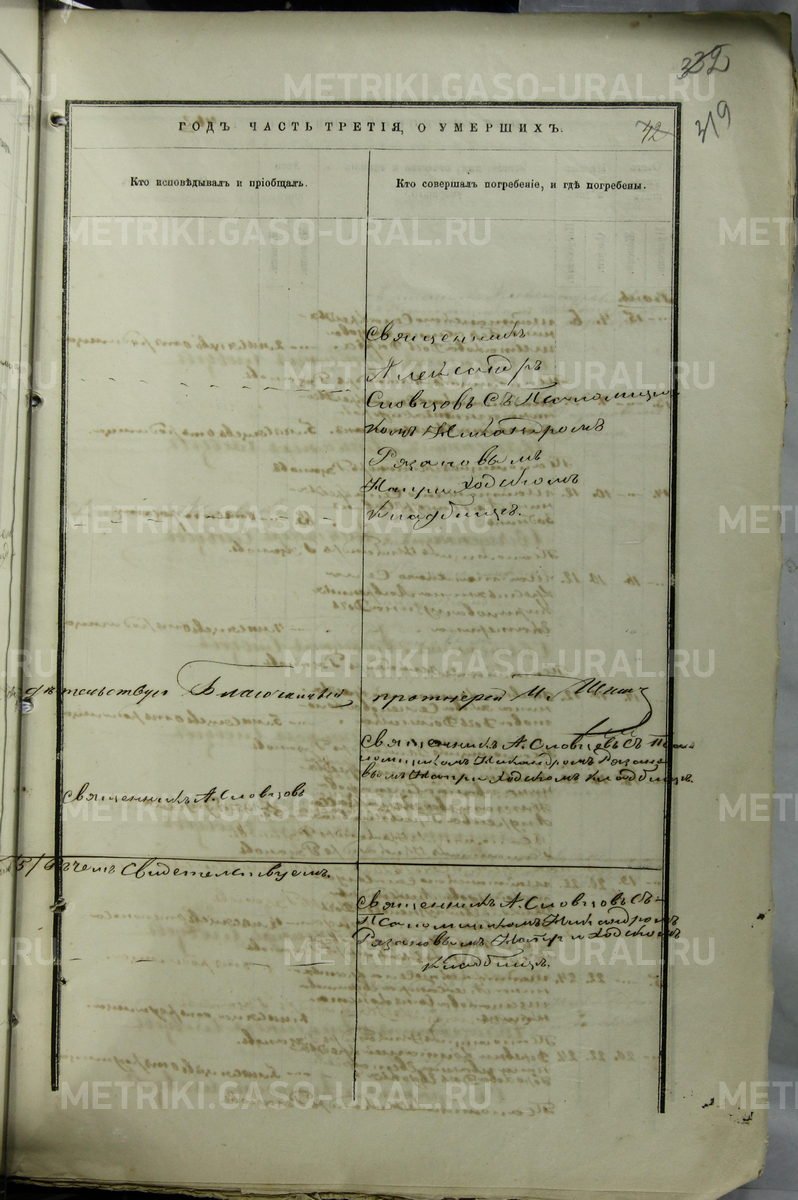 332
319
ГОДЪ ЧАСТЬ ТРЕТІЯ, О УМЕРШИХЪ.
Кто исповѣдывалъ и пріобщалъ.
Кто совершалъ погребеніе, и гдѣ погребены.
METRIKI.GASO-URAL.RU
Священникъ
Александръ
Словцовъ съ Псаломщи
комъ Никандромъ
Рязановымъ
На приходскомъ
кладбищѣ.
дѣтельствуетъ Благочинный протоіерей М.
Священникъ А. Словцовъ съ Пса
ломщикомъ Никандромъ Рязано
вымъ На приходскомъ кладбищѣ.
Священникъ А. Словцовъ
чемъ свидетельствуемъ.
Священникъ А. Словцовъ съ
Псаломщикомъ Никандромъ
Рязановымъ На приходскомъ
кладбищѣ.